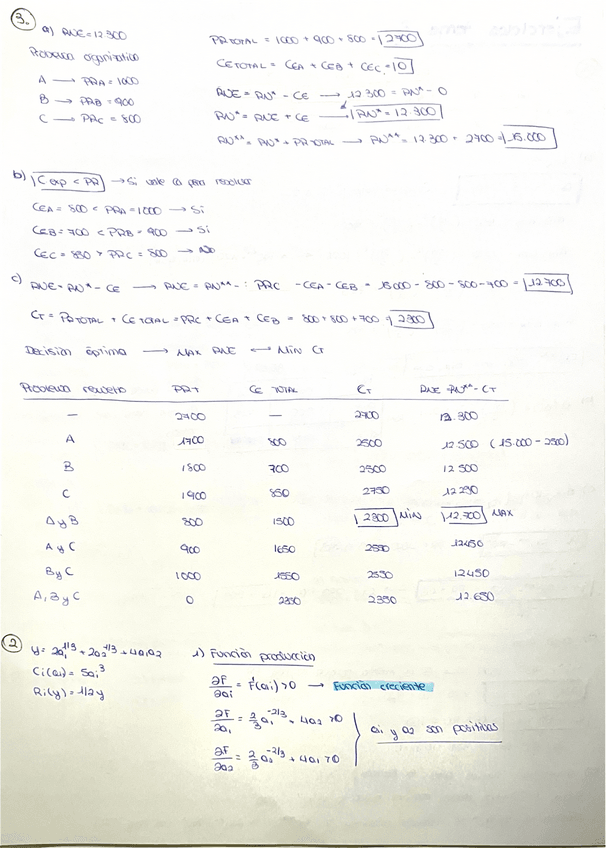 3. a) RNE = 12300
Problema organizativo
A → PRA = 1000
B → PRB = 900
C → PRC = 800
PRTOTAL = 1000 + 900 + 800 = 2700
CETOTAL = CEA + CEB + CEC = 0
RNE = RN^ - CE → 12300 = RN^ - 0
RN^ = RNE + CE → RN^ = 12.300
RN^^ = RN^ + PRTOTAL → RN^^ = 12.300 + 2700 = 15.000
b) C exp < PR → Si vale la pena resolver
CEA = 800 < PRA = 1000 → Si
CEB = 700 < PRB = 900 → Si
CEC = 850 > PRC = 800 → No
c) RNE = RN^ - CE → RNE = RN^^ - PRC - CEA - CEB = 15000 - 800 - 800 - 700 = 12.700
CT = PRTOTAL + CETOTAL = PRC + CEA + CEB = 800 + 800 + 700 = 2300
Decisión óptima → MAX RNE ↔ MIN CT
Problema resuelto PRT CE TOTAL CT RNE = RN^^ - CT
— 2700 — 2700 12.300
A 1700 800 2500 12.500 (15.000 - 2500)
B 1800 700 2500 12500
C 1900 850 2750 12250
A y B 800 1500 2300 MIN 12.700 MAX
A y C 900 1650 2550 12450
B y C 1000 1550 2550 12450
A, B y C 0 2350 2350 12.650
2 y = 2a₁^1/3 + 2a₂^1/3 + 4a₁a₂
Ci(ai) = 5ai³
Ri(y) = 1/2 y
1) Función producción
∂F/∂ai = f'(ai) > 0 → Función creciente
∂F/∂a₁ = 2/3 a₁^-2/3 + 4a₂ > 0
∂F/∂a₂ = 2/3 a₂^-2/3 + 4a₁ > 0
a₁ y a₂ son positivas